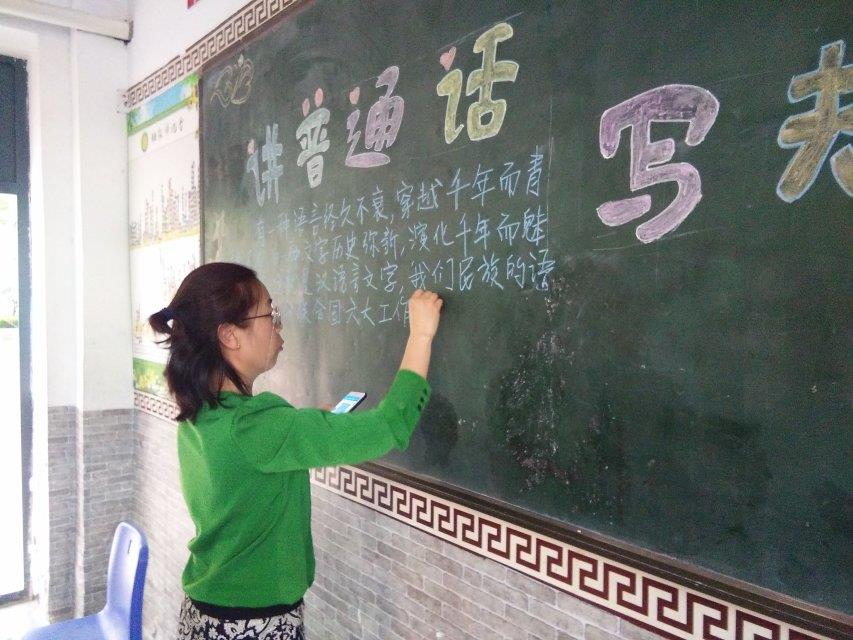 讲普通话 写
有一种语言经久不衰,穿越千年而青
文字历史弥新,演化千年而魅
是汉语言文字,我们民族的语
全国六大工作